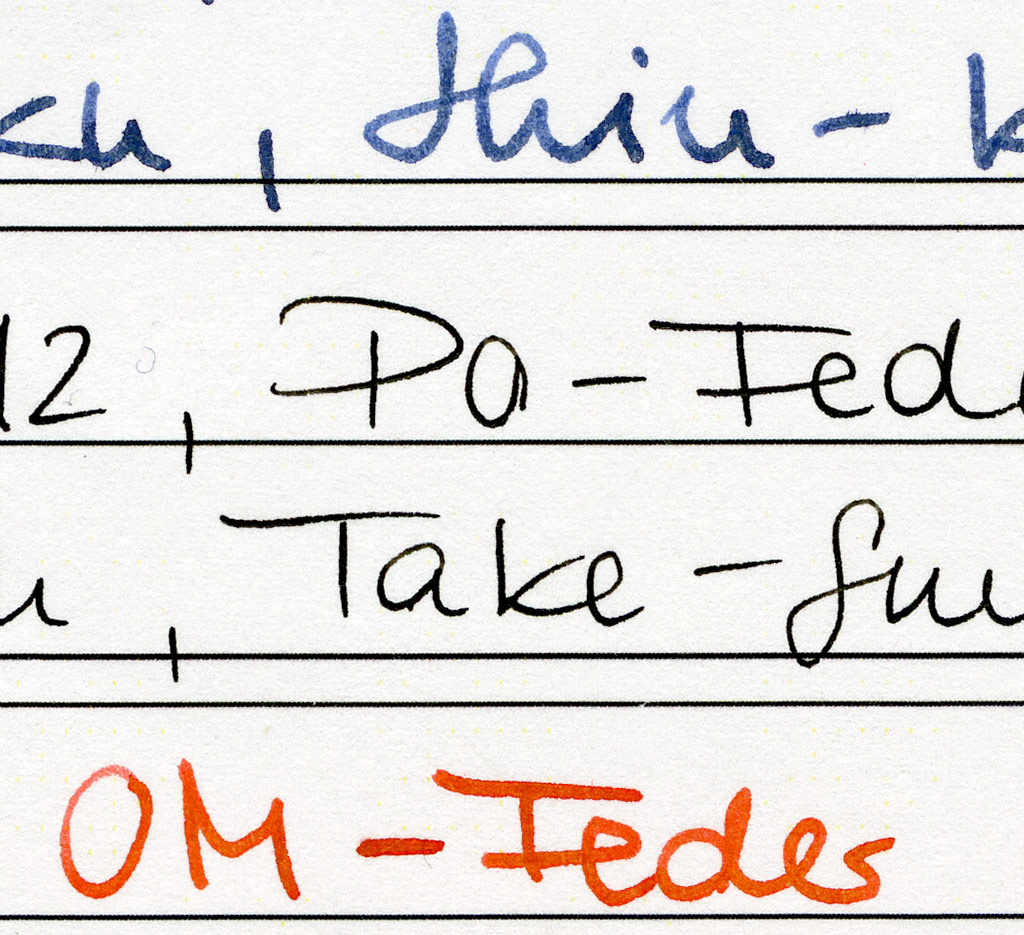 , Shin-k
12, PO-Fede
, Take-su
OM-Feder